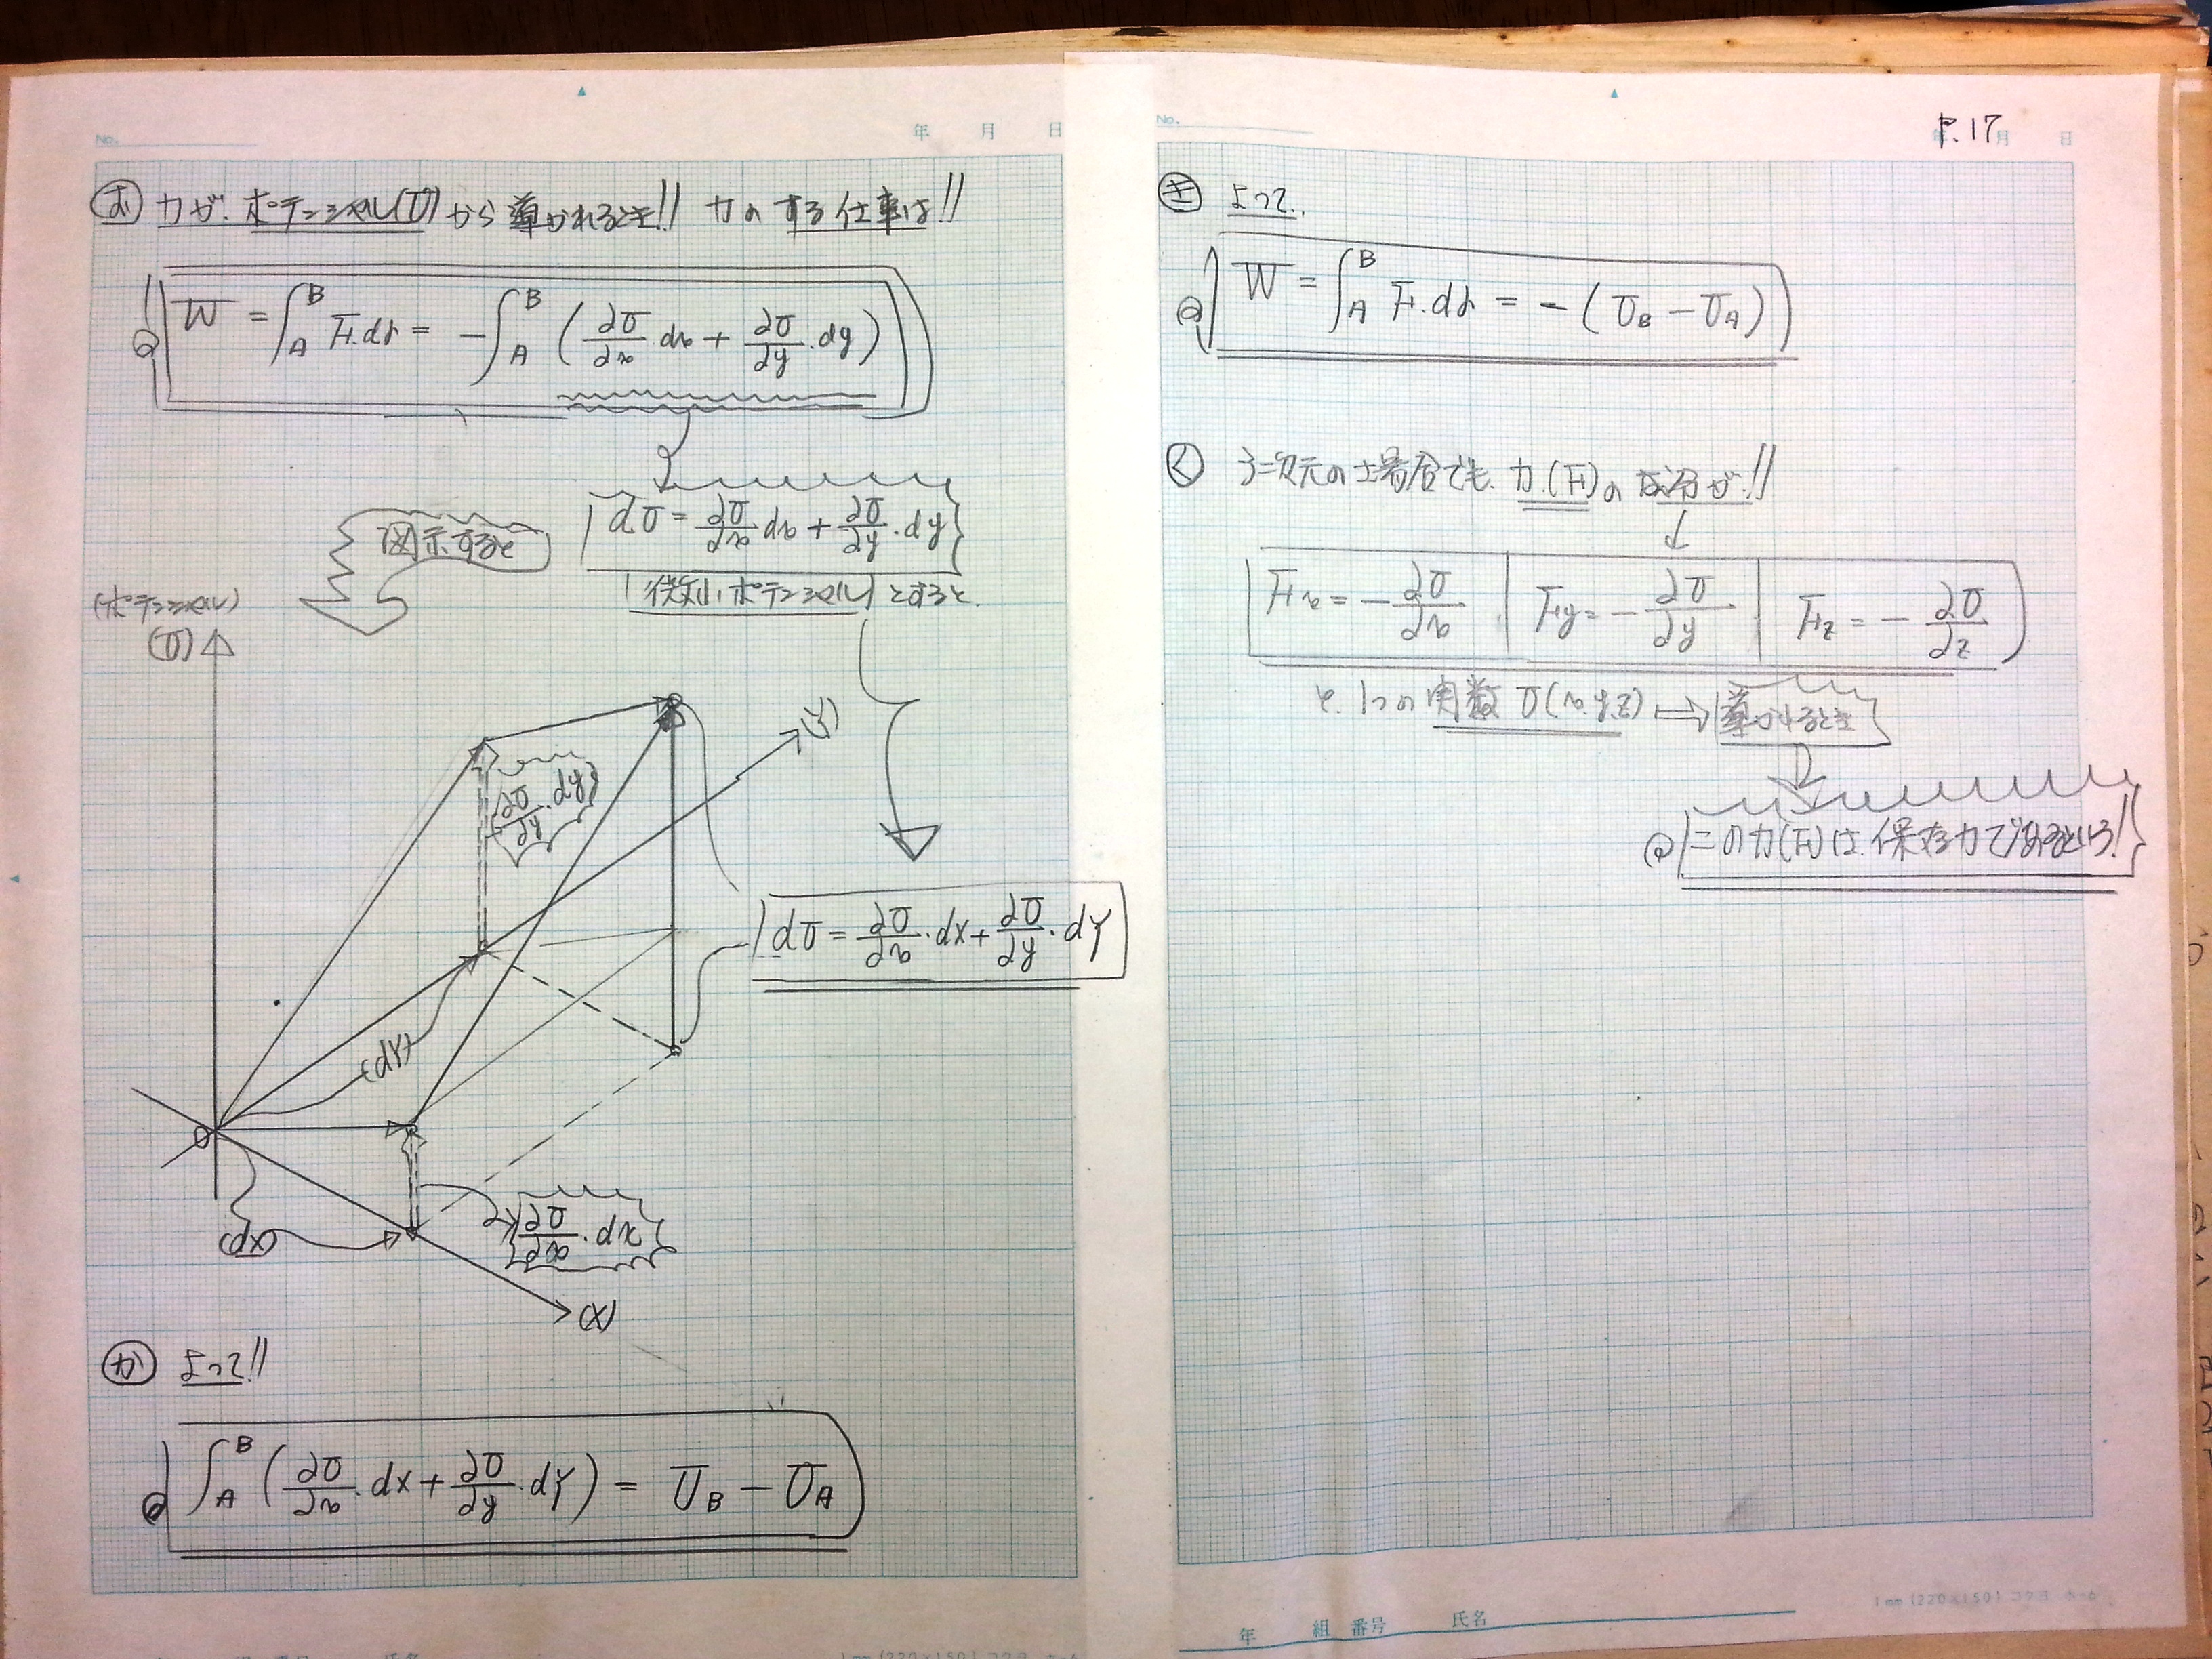 No. 年 月 日
お 力が、ポテンシャル(U)から導かれるとき!! 力の する仕事は!!
W = ∫_A^B F・dr = -∫_A^B (∂U/∂x・dx + ∂U/∂y・dy)
dU = ∂U/∂x dx + ∂U/∂y・dy
「微小ポテンシャル」とすると、
図示すると
(ポテンシャル)
(U)
(Y)
∂U/∂y・dy
dU = ∂U/∂x・dX + ∂U/∂y・dY
(dY)
O
(dX)
∂U/∂x・dx
(X)
か よって!!
∫_A^B (∂U/∂x・dX + ∂U/∂y・dY) = U_B - U_A
No. 年 月 日
P.17
き よって、
W = ∫_A^B F・dr = -(U_B - U_A)
く 三次元の場合でも、力(F)の成分が!!
Fx = -∂U/∂x Fy = -∂U/∂y Fz = -∂U/∂z
と、1つの関数 U(x,y,z) → 導かれるとき
この力(F)は、保存力であるという!!
1mm(220×150) コクヨ ホ-
年 組 番号 氏名